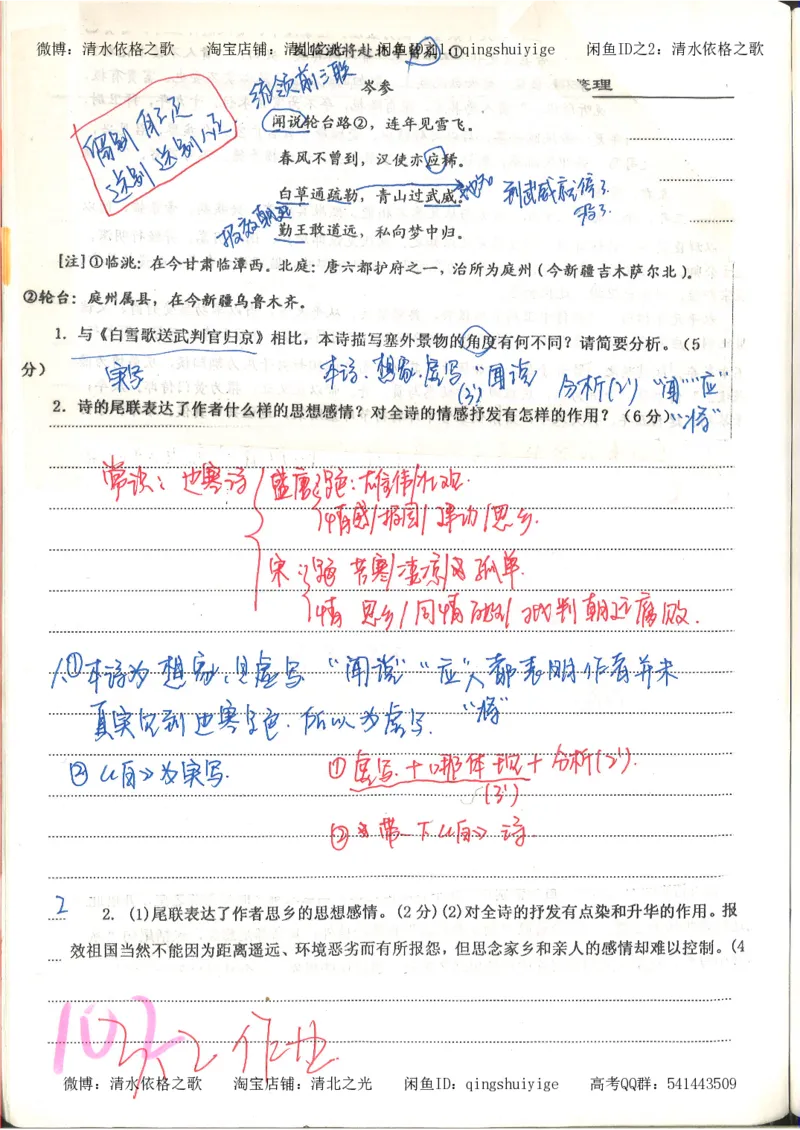 微博：清水依格之歌 淘宝店铺：清北之光 闲鱼ID：qingshuiyige 闲鱼ID之2：清水依格之歌
发临洮将赴北庭留别①
岑参
整理
统领前三联
闻说轮台路②，连年见雪飞。
春风不曾到，汉使亦应稀。
白草通疏勒，青山过武威。
到武威
勤王敢道远，私向梦中归。
[注]①临洮：在今甘肃临潭西。北庭：唐六都护府之一，治所为庭州(今新疆吉木萨尔北)。
②轮台：庭州属县，在今新疆乌鲁木齐。
1．与《白雪歌送武判官归京》相比，本诗描写塞外景物的角度有何不同？请简要分析。(5
分)
实写
本诗：想象 虚写 “闻说”
(3')
分析(2') “闻”“应”
“将”
2．诗的尾联表达了作者什么样的思想感情？对全诗的情感抒发有怎样的作用？(6分)
常识：边塞诗
盛唐 景色：雄伟/壮观.
情感/报国/建功/思乡.
宋：景 苦寒/凄凉/孤单.
情 思乡/同情/批判朝廷腐败.
1.①本诗为想象，是虚写 “闻说”“应”都表明作者并未
真实见到边塞景色.所以为虚写. “将”
②《白》为实写.
①虚写.+哪体现+分析(2').
(3')
②带一下《白》诗.
2
2．(1)尾联表达了作者思乡的思想感情。(2分)(2)对全诗的抒发有点染和升华的作用。报
效祖国当然不能因为距离遥远、环境恶劣而有所报怨，但思念家乡和亲人的感情却难以控制。(4
102
作业
微博：清水依格之歌 淘宝店铺：清北之光 闲鱼ID：qingshuiyige 高考QQ群：541443509